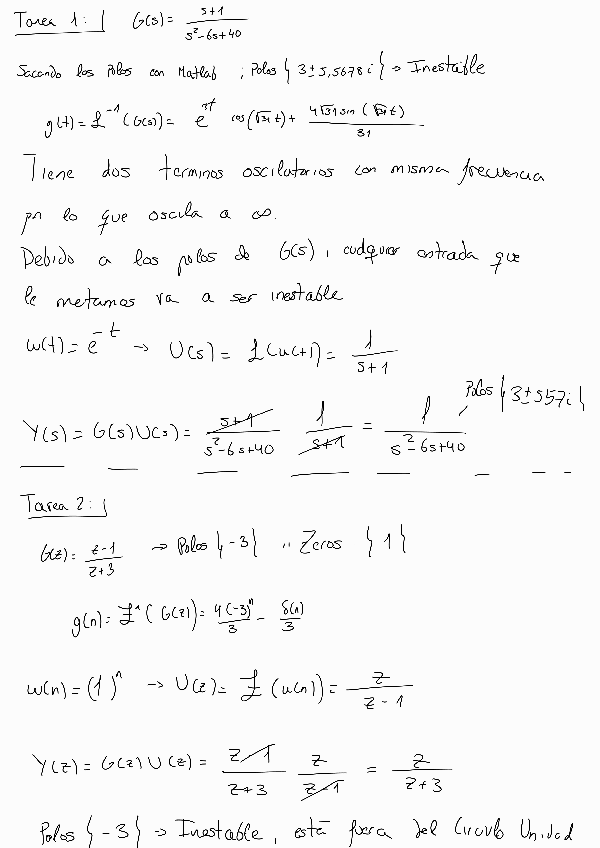 Tarea 1: G(s) = (s+1)/(s²-6s+40)
Sacando los Polos con Matlab ; Polos {3±5,5678i} → Inestable
g(t) = ℒ⁻¹(G(s)) = cos(√31 t) + 4√31 sin(√31 t)/31
Tiene dos terminos oscilatorios con misma frecuencia
por lo que oscila a ∞.
Debido a los polos de G(s), cualquier entrada que
le metamos va a ser inestable
u(t) = e^-t → U(s) = ℒ(u(t)) = 1/(s+1)
Y(s) = G(s)U(s) = (s+1)/(s²-6s+40) 1/(s+1) = 1/(s²-6s+40) Polos {3±557i}
Tarea 2:
G(z) = (z-1)/(z+3) → Polos {-3} ,, Zeros {1}
g(n) = Ƶ⁻¹(G(z)) = 4(-3)ⁿ/3 - δ(n)/3
u(n) = (1)ⁿ → U(z) = Ƶ(u(n)) = z/(z-1)
Y(z) = G(z)U(z) = (z-1)/(z+3) z/(z-1) = z/(z+3)
Polos {-3} → Inestable, está fuera del Circulo Unidad